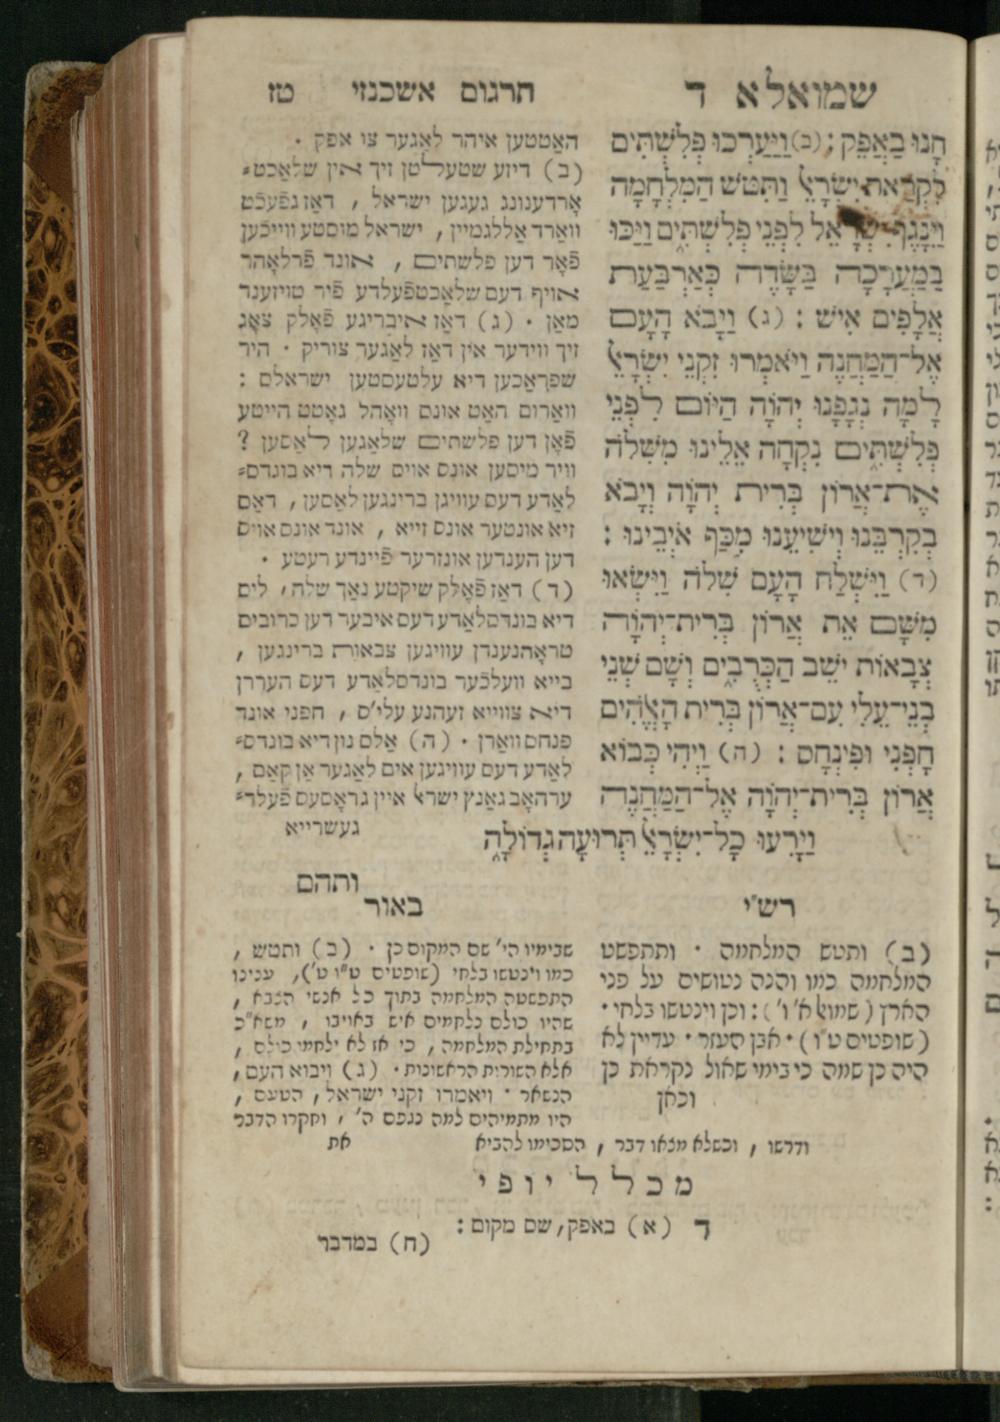 שמואל א ד
תרגום אשכנזי
טז
חָנוּ בַאֲפֵק: (ב) וַיַּעַרְכוּ פְלִשְׁתִּים
לִקְרַאת יִשְׂרָאֵל וַתִּטֹּשׁ הַמִּלְחָמָה
וַיִּנָּגֶף יִשְׂרָאֵל לִפְנֵי פְלִשְׁתִּים וַיַּכּוּ
בַמַּעֲרָכָה בַּשָּׂדֶה כְּאַרְבַּעַת
אֲלָפִים אִישׁ: (ג) וַיָּבֹא הָעָם
אֶל־הַמַּחֲנֶה וַיֹּאמְרוּ זִקְנֵי יִשְׂרָאֵל
לָמָּה נְגָפָנוּ יְהֹוָה הַיּוֹם לִפְנֵי
פְּלִשְׁתִּים נִקְחָה אֵלֵינוּ מִשִּׁלֹה
אֶת־אֲרוֹן בְּרִית יְהֹוָה וְיָבֹא
בְקִרְבֵּנוּ וְיֹשִׁיעֵנוּ מִכַּף אֹיְבֵינוּ:
(ד) וַיִּשְׁלַח הָעָם שִׁלֹה וַיִּשְׂאוּ
מִשָּׁם אֵת אֲרוֹן בְּרִית־יְהֹוָה
צְבָאוֹת יֹשֵׁב הַכְּרֻבִים וְשָׁם שְׁנֵי
בְנֵי־עֵלִי עִם־אֲרוֹן בְּרִית הָאֱלֹהִים
חָפְנִי וּפִינְחָס: (ה) וַיְהִי כְּבוֹא
אֲרוֹן בְּרִית־יְהֹוָה אֶל־הַמַּחֲנֶה
וַיָּרִעוּ כָל־יִשְׂרָאֵל תְּרוּעָה גְדוֹלָה
ותהם
האַטטען איהר לאַגער צו אפק.
(ב) דיזע שטעלטן זיך אין שלאַכט=
אָרדענונג געגען ישראל, דאַז געפֿעכֿט
וואַרד אַללגמיין, ישראל מוסטע ווייכֿען
פֿאָר דען פלשתים, אונד פֿרלאָהר
אויף דעם שלאַכטפֿעלדע פֿיר טויזענד
מאַן. (ג) דאַז איבריגע פֿאָלק צאָג
זיך ווידער אין דאַז לאַגער צוריק. היר
שפראַכען דיא עלטעסטען ישראלס:
וואַרום האַט אונס וואָהל גאָטט הייטע
פֿאָן דען פלשתים שלאַגען לאַסען?
וויר מיסען אונס אויס שלה דיא בונדס=
לאַדע דעס עוויגן ברינגען לאַסען, דאַס
זיא אונטער אונס זייא, אונד אונס אויס
דען הענדען אונזרער פֿיינדע רעטע.
(ד) דאַז פֿאָלק שיקטע נאַך שלה, ליס
דיא בונדסלאַדע דעס איבער דען כרובים
טראָהנענדן עוויגען צבאות ברינגען,
בייא וועלכֿער בונדסלאַדע דעס העררן
דיא צווייא זעהנע עלי'ס, חפני אונד
פנחס וואַרן. (ה) אַלס נון דיא בונדס=
לאַדע דעס עוויגען אים לאַגער אַן קאַם,
ערהאָב גאַנץ ישראל איין גראָסעס פֿעלד=
געשרייא
רש"י
(ב) ותטש המלחמה. ותתפשט
המלחמה כמו והנה נטושים על פני
הארץ (שמואל א' ו'): וכן וינטשו בלחי.
(שופטים ט"ו). אבן העזר. עדיין לא
היה כן שמה כי בימי שאול נקראת כן
וכאן
באור
שבימיו הי' שם המקום כן. (ב) ותטש,
כמו וינטשו בלחי (שופטים ט"ו ט'), ענינו
התפשטה המלחמה בתוך כל אנשי הצבא,
שהיו כולם נלחמים איש באויבו, משא"כ
בתחילת המלחמה, כי אז לא ילחמו כולם,
אלא השורות הראשונות. (ג) ויבוא העם,
הנשאר. ויאמרו זקני ישראל, הטעם,
היו מתמיהים למה נגפם ה', וחקרו הדבר
ודרשו, וכשלא מצאו דבר, הסכימו להביא
את
מכלל יופי
ד (א) באפק, שם מקום:
(ח) במדבר